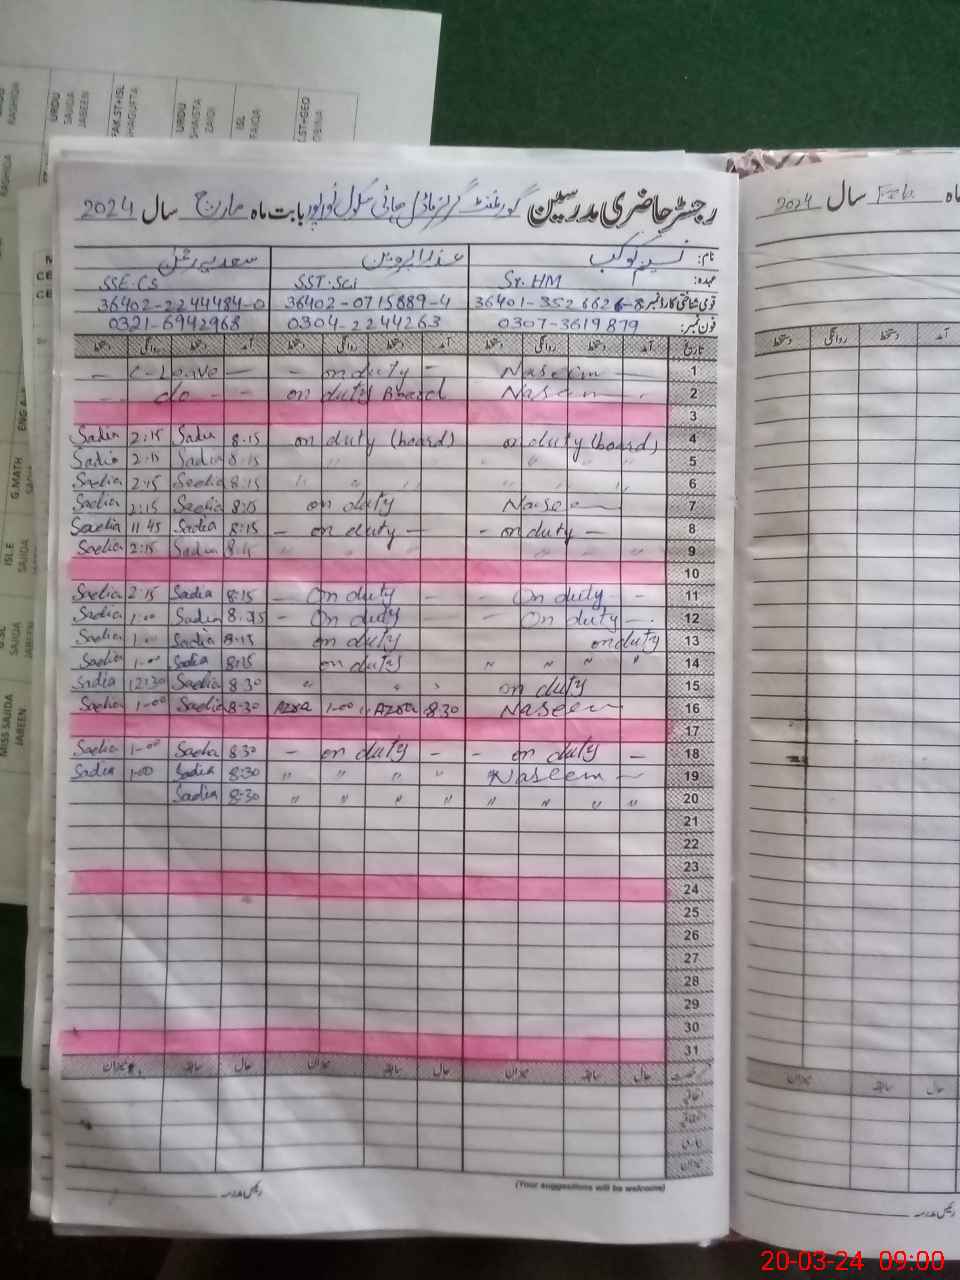 رجسٹر حاضری مدرسین گورنمنٹ گرلز ماڈل ہائی سکول نورپور بابت ماہ مارچ سال 2024
نام: نسیم کوکب عذرا پروین سعدیہ
عہدہ: Sr. HM SST. Sci SSE. CS
قومی شناختی کارڈ نمبر 36401-3526626-8 36402-0715889-4 36402-2244484-0
فون نمبر: 0307-3619879 0304-2244263 0321-6942968
تاریخ آمد دستخط روانگی دستخط آمد دستخط روانگی دستخط آمد دستخط روانگی دستخط
1 Naseem — - on duty - — C-Leave —
2 Naseem on duty Board - do - -
3
4 on duty (board) on duty (board) 8.15 Sadia 2:15 Sadia
5 " " " " 8:15 Sadia 2:15 Sadia
6 " " " " 8:15 Sadia 2:15 Sadia
7 Naseem on duty 8:15 Sadia 2:15 Sadia
8 - on duty - - on duty - 8:15 Sadia 11:45 Sadia
9 " " " " 8:15 Sadia 2:15 Sadia
10
11 - On duty - - On duty - 8:15 Sadia 2:15 Sadia
12 - On duty - - On duty Sadia 1:00 Sadia
13 on duty on duty 8:15 Sadia 1:00 Sadia
14 " " " " on duty 8:15 Sadia 1-00 Sadia
15 on duty " " " 8:30 Sadia 12:30 Sadia
16 Naseem 8:30 Azra 1-00 Azra 8-30 Sadia 1-00 Sadia
17
18 - on duty - - on duty - 8:30 Sadia 1-00 Sadia
19 Naseem — " " " " 8:30 Sadia 1-00 Sadia
20 " " " " " " " " 8:30 Sadia
21
22
23
24
25
26
27
28
29
30
31
حال سابقہ میزان حال سابقہ میزان حال سابقہ میزان
اتفاقی
میزان
(Your suggestions will be welcome)
رئیس مدرسہ
ماہ Feb. سال 2024
آمد دستخط روانگی دستخط
حال سابقہ میزان
رئیس مدرسہ
RASHIDA
URDU SAJIDA JABEEN
PAK.ST+ISL SHAGUFTA
URDU SHAISTA ZAIDI
ISL FAIQA
L.ST+GEO
G.MATH
ISL.E SAJIDA
SAJIDA JABEEN
MISS SAJIDA JABEEN
20-03-24 09:00